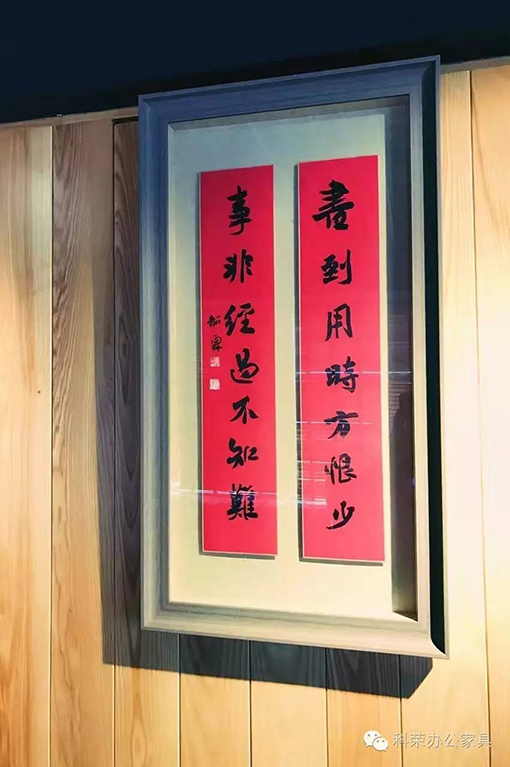 書到用時方恨少
事非經過不知難
科荣办公家具